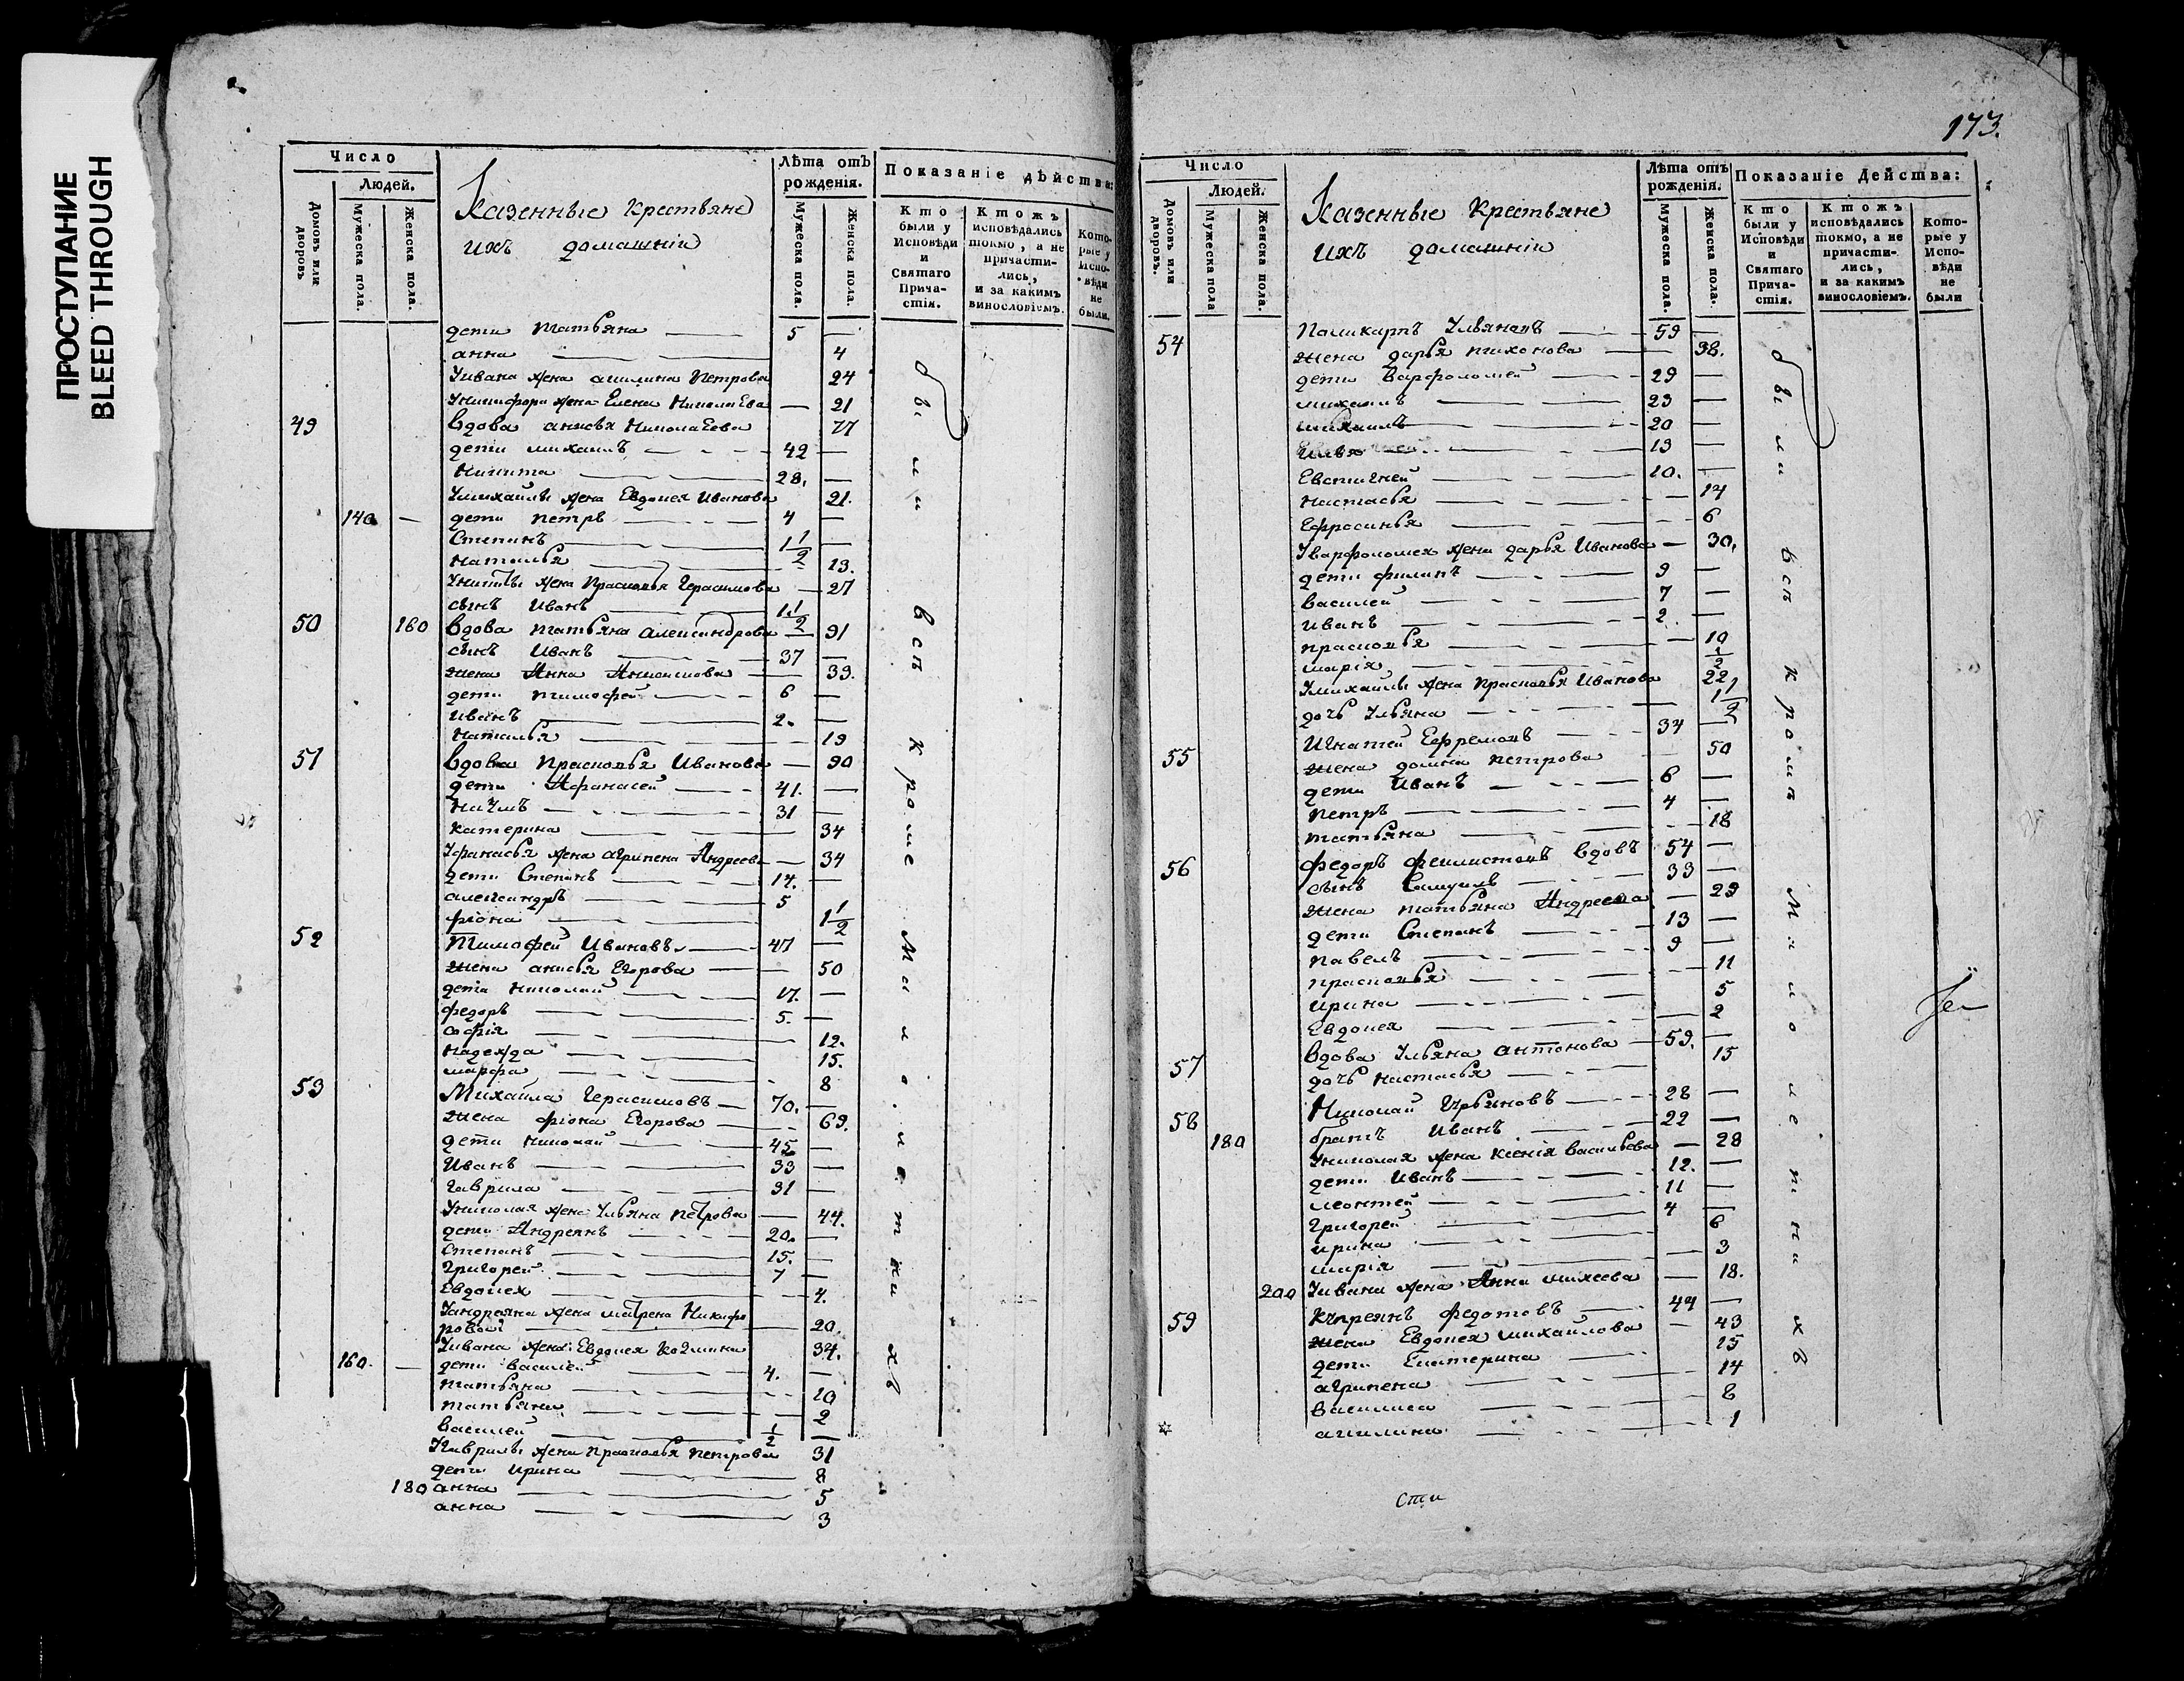 ПРОСТУПАНИЕ
BLEED THROUGH
Число
Людей.
Домовъ или дворовъ
Мужеска пола.
Женска пола.
Казенные крестьяне
ихъ домашніи
Лѣта отъ рожденія.
Мужеска пола.
Женска пола.
Показаніе дѣйства:
Кто были у Исповѣди и Святаго Прича-стія.
Ктожъ исповѣдались токмо, а не причасти-лись, и за какимъ винословіемъ.
Кото-рые у Испо-вѣди не были.
дети татьяна 5 —
анна 4
Уивана жена акилина петрова 24
Уникифора жена Елена николаева — 21
49 вдова анисья николаева 77
дети михаилъ 42 —
никита 28. —
Умихайлы жена Евдокея иванова 21.
140 — дети петръ 4 —
Степанъ 1 1/2 —
наталья 13.
Уникиты жена прасковья Герасимова — 27
сынъ иванъ 1 1/2
50 160 вдова татьяна александрова — 91
сынъ иванъ 37 —
жена Анна 39.
дети тимофей 6 —
иванъ 2. —
наталья 19
51 вдова прасковья Иванова — 90
дети Афанасей 41. —
наумъ 31 —
катерина 34
Уфанасья жена агрипена Андреева — 34
дети Степанъ 14. —
александръ 5
фіона 1 1/2
52 Тимофей Ивановъ 47 —
жена анисья Егорова — 50
дети николай 17. —
федоръ 5. —
софія 12.
надежда 15.
марфа 8
53 Михайла Герасимовъ 70. —
жена фіона Егорова 69.
дети николай 45 —
Иванъ 33 —
Гаврила 31 —
Униколая жена Ульяна петрова — 44.
дети Андреянъ 20. —
степанъ 15. —
Григорей 7 —
Евдокея 4.
Уандреяна жена матрена Никифо
рова 20.
Уивана жена Евдокея Козмина 34.
160. — дети василей 4. —
татьяна 10
татьяна 2
василей 1/2 —
Угаврилы жена прасковья петрова 31
дети ирина 8
180 анна 5
анна 3
были всѣ кроме малолетнихъ
173.
Число
Людей.
Домовъ или дворовъ.
Мужеска пола
Женска пола.
Казенные крестьяне
ихъ домашніи
Лѣта отъ рожденія.
Мужеска пола.
Женска пола.
Показаніе Действа:
Кто были у Исповѣди и Святаго Прича-стія.
Ктожъ исповѣдались токмо, а не причасти-лись, и за какимъ винословіемъ.
Кото-рые у Испо-вѣди не были
54 Поликарпъ Ульяновъ 59 —
жена дарья тихонова 38.
дети варфоломей 29 —
михаилъ 23 —
михаилъ 20 —
13 —
Евстигней 10. —
настасья 14
Ефросинья 6
Уварфоломея жена дарья Иванова — 30.
дети филипъ 9 —
василей 7 —
иванъ 2. —
прасковья 10
марія 1/2
Умихайлы жена прасковья Иванова 22
дочь Ульяна 1 1/2
55 Игнатей Ефремовъ 34 —
жена домна петрова 50
дети Иванъ 6 —
петръ 4 —
татьяна 18
56 федоръ феклистовъ вдовъ 54 —
сынъ Самуилъ 33 —
жена татьяна Андреева — 29
дети Степанъ 13 —
павелъ 9 —
прасковья 11
ирина 5
Евдокея 2
57 вдова Ульяна антонова 59.
дочь настасья 15
58 Николай Курьяновъ 28 —
180 братъ Иванъ 22 —
Униколая жена ксенія васильева — 28
дети Иванъ 12. —
леонтей 11 —
Григорей 4 —
ирина 6
марія 3
200 Уивана жена Анна михеева — 18.
59 Купреянъ федотовъ 44 —
жена Евдокея михайлова — 43
дети Екатерина 15
агрипена 14
василиса 8
акилина 1
были всѣ кромѣ малолетнихъ